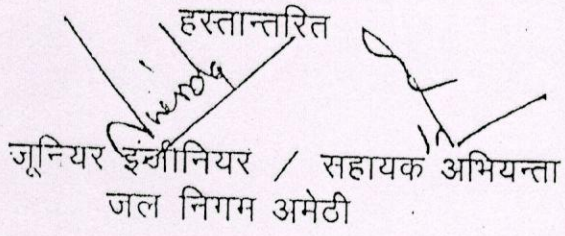 हस्तान्तरित
जूनियर इंजीनियर / सहायक अभियन्ता
जल निगम अमेठी